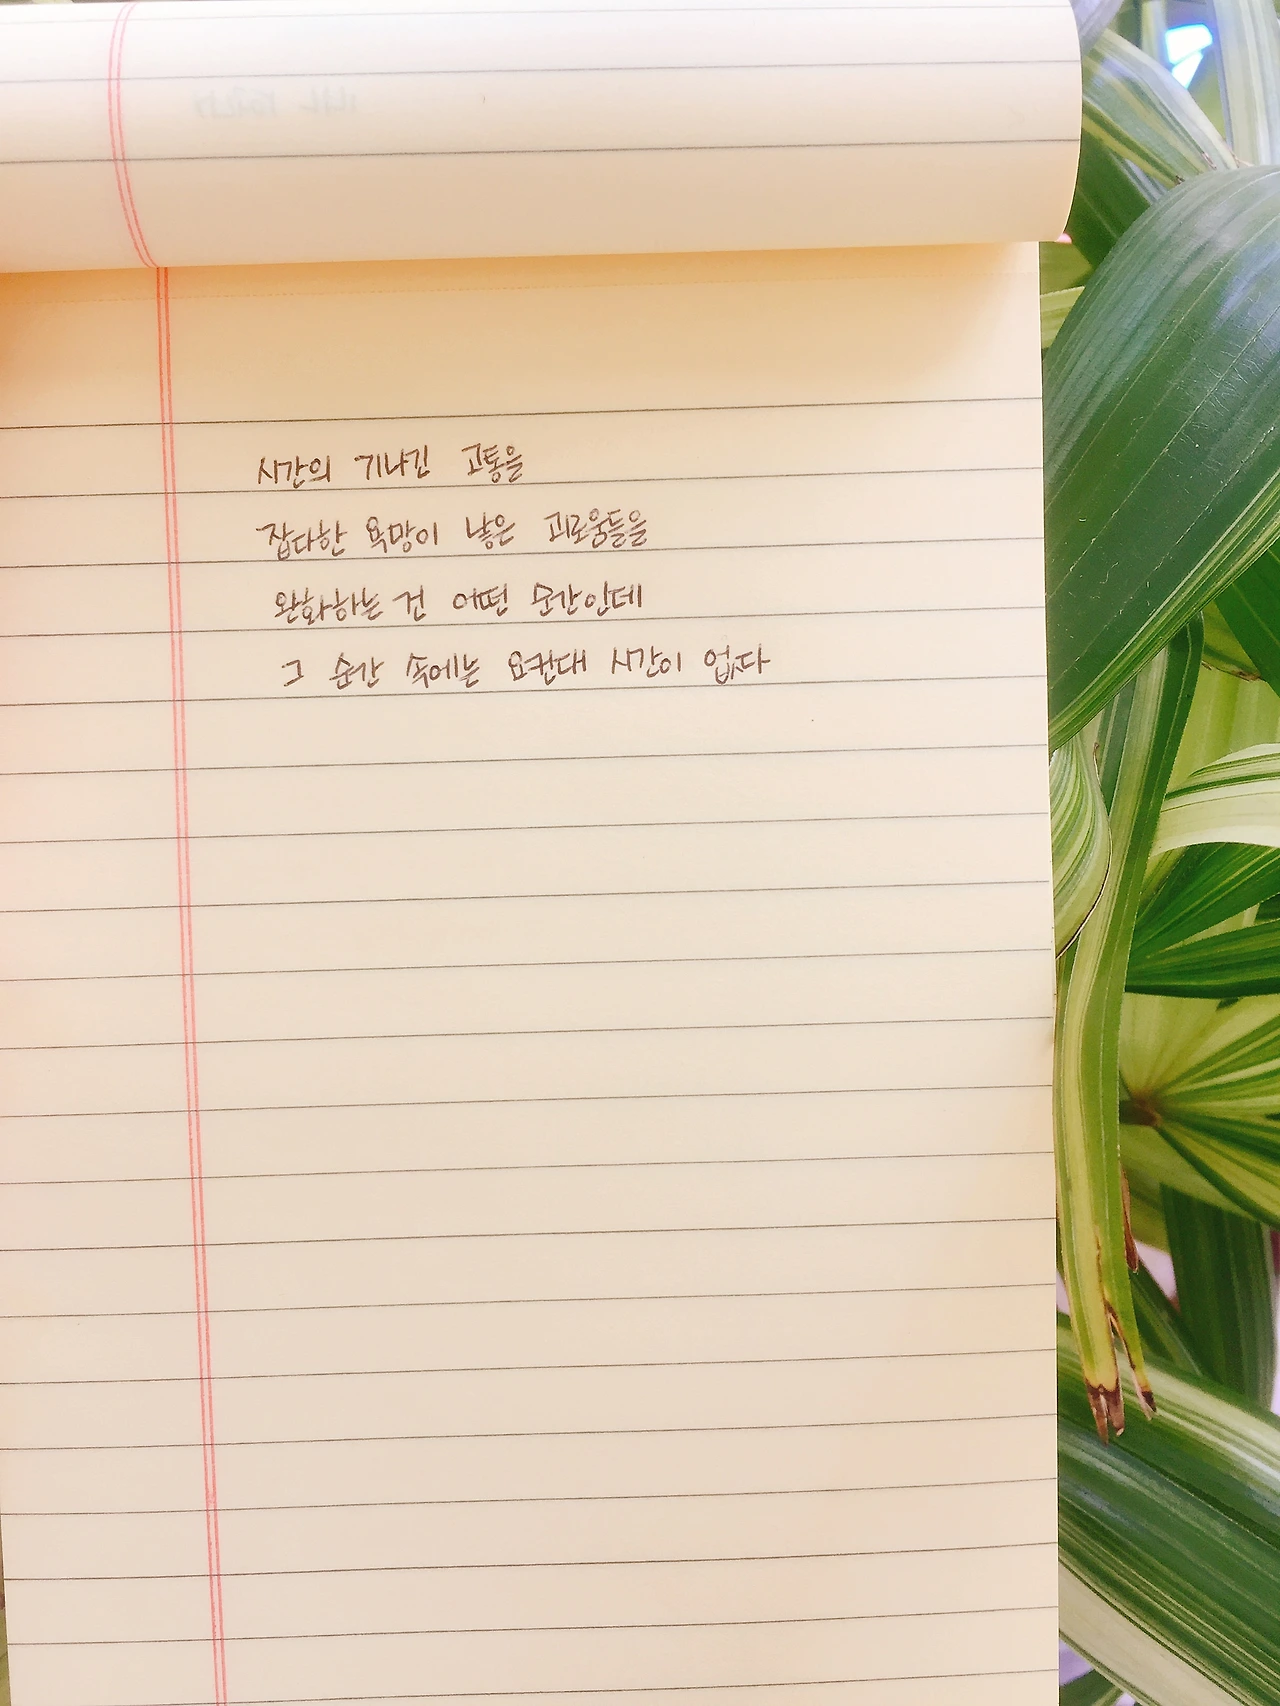 시간의 기나긴 고통을
잡다한 욕망이 낳은 괴로움들을
완화하는 건 어떤 순간인데
그 순간 속에는 요컨대 시간이 없다